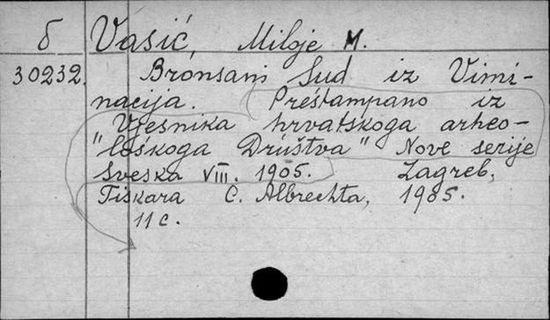 б Vasić, Miloje M.
30232. Bronsani Sud iz Vimi-
nacija. Preštampano iz
Vjesnika hrvatskoga arheo-
"loškoga Društva" Nove serije
Sveska VIII. 1905. Zagreb,
Tiskara C. Albrechta, 1985.
11 с.